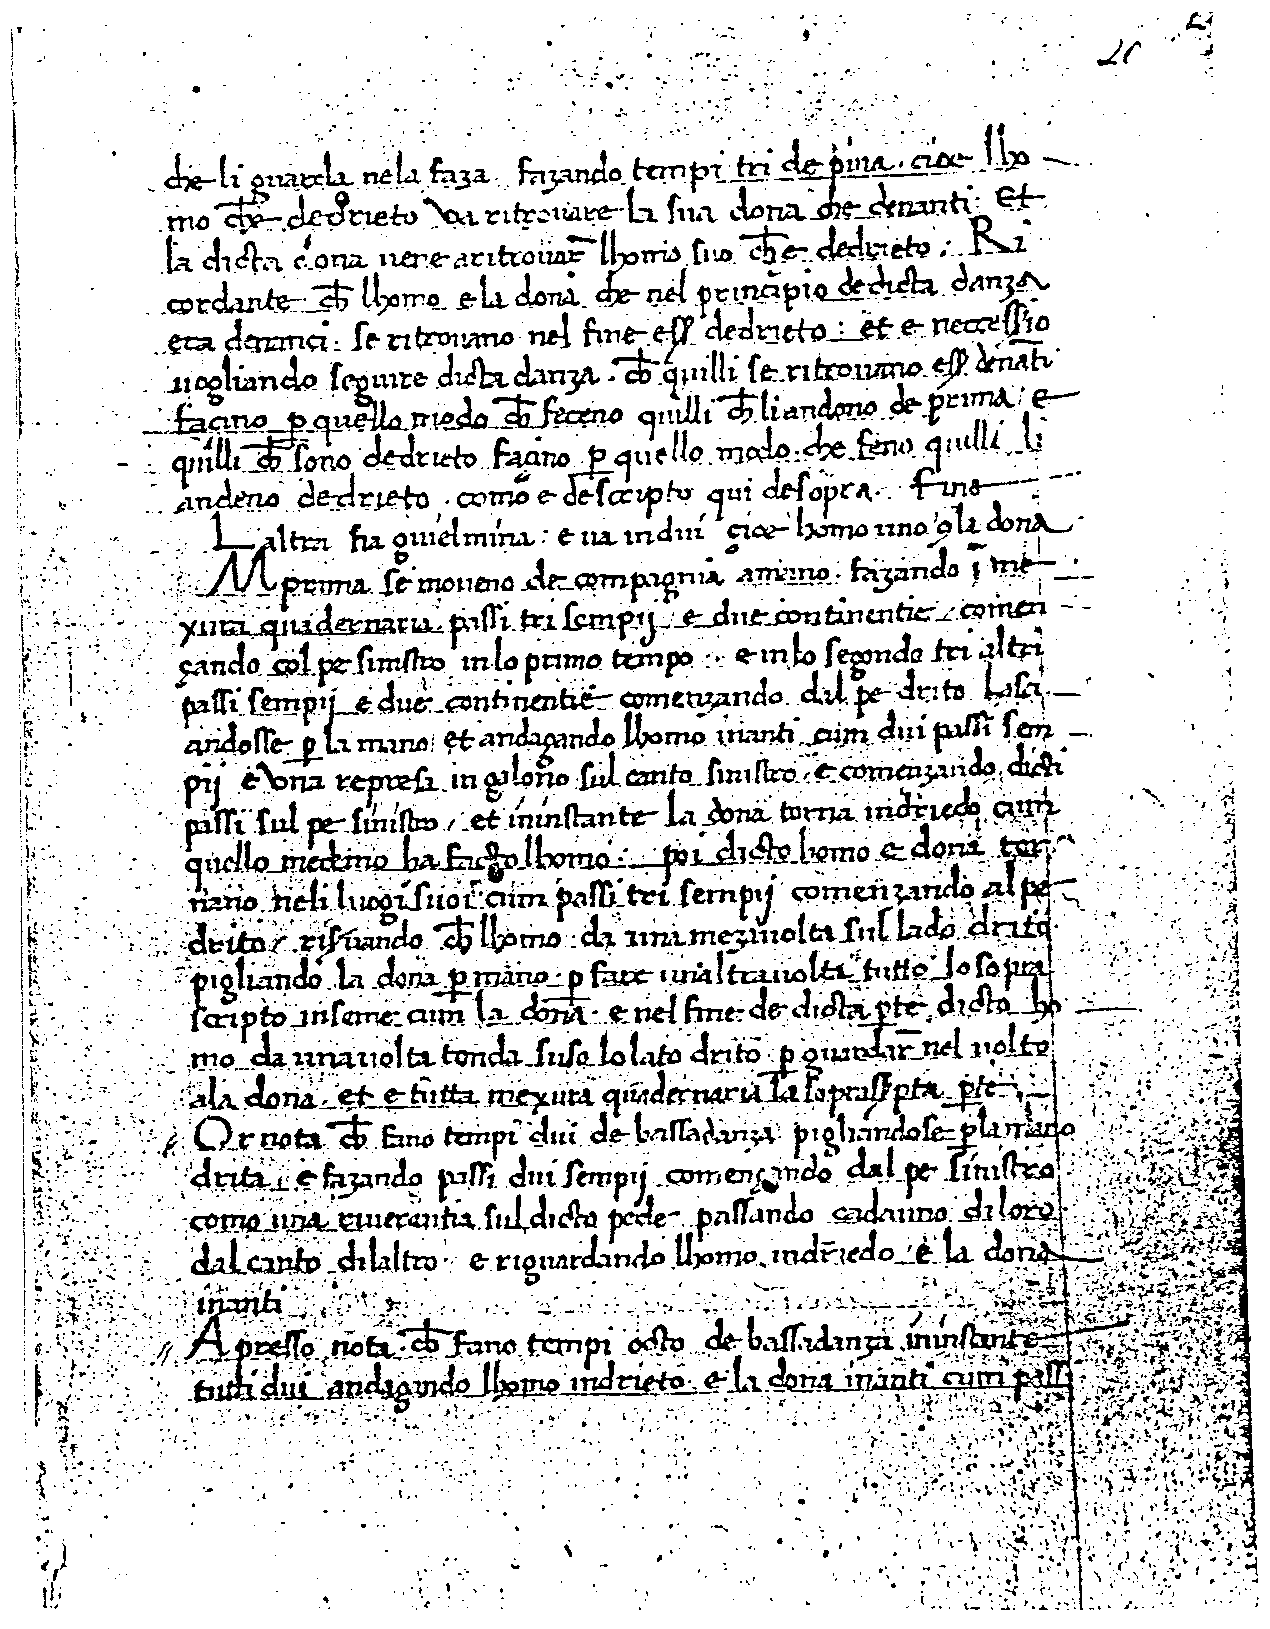 che li guarda nela faza. fazando tempi tri de piva. cioe lho
mo che dedrieto va ritrovare la sua dona che denanti. Et
la dicta dona vene a ritrovar lhomo suo che dedrieto. Ri
cordante ch lhomo e la dona che nel principio de dicta danza
era denanci. se ritrovano nel fine ess dedrieto. et e necessio
vogliando seguire dicta danza. ch quilli se ritrovano ess denati
facino p quello modo ch feceno quilli ch li andono de prima. e
quilli ch sono dedrieto facino p quello modo. che feno quilli li
andeno dedrieto. como e descripto qui desopra. Fine
Laltra fia guielmina. e va in dui cioe homo uno 9 la dona
Mprima se moveno de compagnia a mano. fazando ĩ me
xura quadernaria. passi tri sempij. e due continentie. comen
çando col pe sinistro in lo primo tempo. e in lo segondo tri altri
passi sempij e due continentie comenzando dal pe drito lassi
andosse p la mano. et andagando lhomo inanti cum dui passi sem
pij e una represa in galono sul canto sinistro. e comenzando dicti
passi sul pe sinistro. et in instante la dona torna indriedo cum
quello medemo ha facto lhomo. poi dicto homo e dona tor
nano neli luogi suoi cum passi tri sempij comenzando al pe
drito. risvando ch lhomo da una meza volta sul lado drito
pigliando la dona p mano. p fare unaltra volta tutto lo sopra
scripto inseme cum la dona. e nel fine de dicta pte dicto ho
mo da una volta tonda suso lo lato drito p guardar nel volto
ala dona. et e tutta mexura quadernaria la soprasspta pte.
Or nota ch fano tempi dui de bassadanza pigliandose p la mano
drita. e fazando passi dui sempij començando dal pe sinistro
como una riverentia sul dicto pede passando cadauno di loro
dal canto dilaltro. e riguardando lhomo indriedo e la dona
inanti
Apresso nota. ch fano tempi octo de bassadanza in instante
tutti dui andagando lhomo indrieto. e la dona inanti cum passi